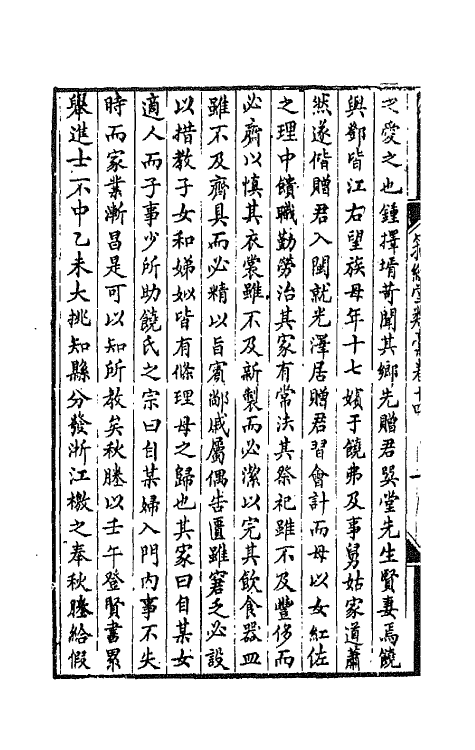 之愛之也鍾擇壻苛聞其鄉先贈君巽堂先生賢妻焉饒
與鄧皆江右望族母年十七嬪于饒弗及事舅姑家道蕭
然遂偕贈君入閩就光澤居贈君習會計而母以女紅佐
之理中饋職勤勞治其家有常法其祭祀雖不及豐侈而
必齊以慎其衣裳雖不及新製而必潔以完其飲食器皿
雖不及齊具而必精以旨賓鄰戚屬偶告匱雖窘乏必設
以措教子女和娣姒皆有條理母之歸也其家曰自某女
適人而子事少所助饒氏之宗曰自某婦入門內事不失
時而家業漸昌是可以知所教矣秋塍以壬午登賢書累
舉進士不中乙未大挑知縣分發浙江檄之奉秋塍給假
堂類稾卷十四